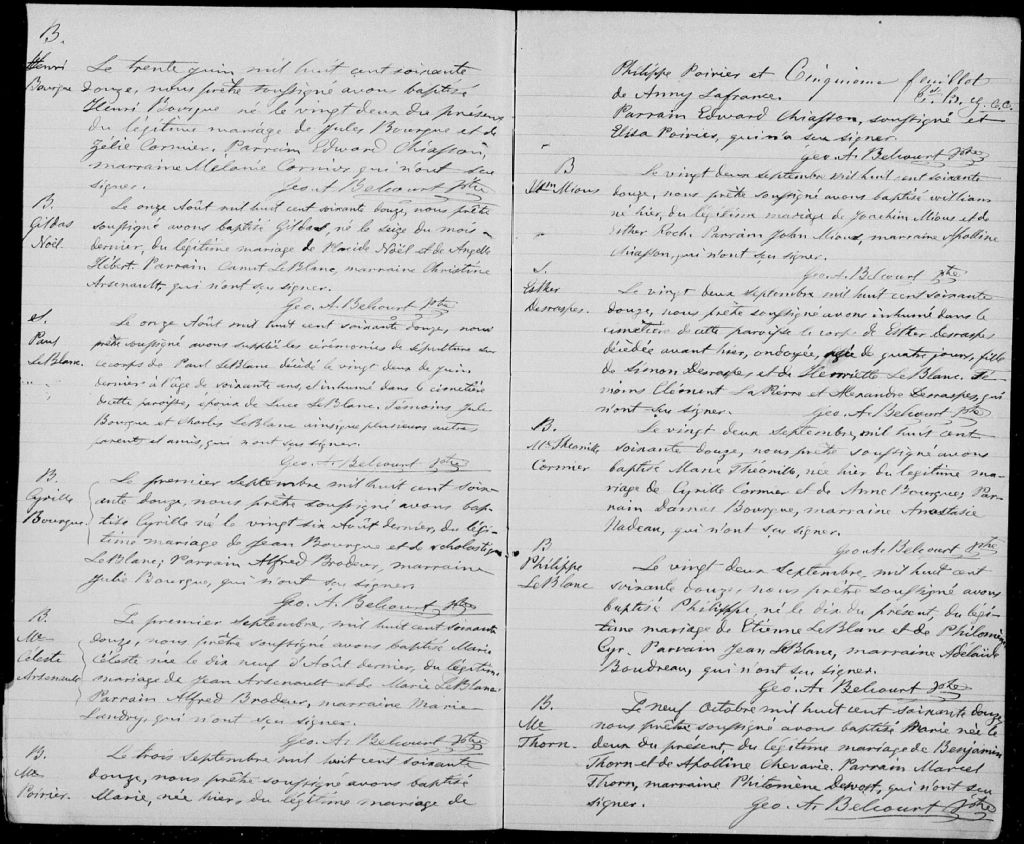 B.
Henri
Bourgue
Le trente juin mil huit cent soixante
douze, nous prêtre soussigné avons baptisé
Henri Bourgue né le vingt deux du présent
du légitime mariage de Jules Bourgue et de
Zélie Cormier. Parrain Edward Chiasson,
marraine Mélanie Cormier qui n'ont su
signer. Geo A. Belcourt ptre
B.
Gildas
Noël.
Le onze Août mil huit cent soixante douze, nous prêtre
soussigné avons baptisé Gildas, né le seize du mois
dernier, du légitime mariage de Placide Noël et de Angelle
Hébert. Parrain Canut LeBlanc, marraine Christine
Arsenault, qui n'ont su signer.
Geo. A. Belcourt ptre
S.
Paul
LeBlanc.
Le onze Août mil huit cent soixante douze, nous
prêtre soussigné avons suppléé les cérémonies de sépulture sur
le corps de Paul LeBlanc décédé le vingt deux de juin
dernier à l'âge de soixante ans, et inhumé dans le cimetière
de cette paroisse, époux de Luce LeBlanc. Témoins Jule
Bourgue et Charles LeBlanc ainsi que plusieurs autres
parents et amis, qui n'ont su signer.
Geo. A. Belcourt ptre
B.
Cyrille
Bourgue.
Le premier Septembre mil huit cent soix-
ante douze, nous prêtre soussigné avons bap-
tisé Cyrille né le vingt six Août dernier, du légi-
time mariage de Jean Bourgue et de Scholastique
LeBlanc; Parrain Alfred Brodeur, marraine
Julie Bourgue, qui n'ont su signer.
Geo. A. Belcourt ptre
B.
Mie
Céleste
Arsenault
Le premier Septembre, mil huit cent soixante
douze, nous prêtre soussigné avons baptisé Marie
Céleste née le dix neuf d'Août dernier, du légitime
mariage de Jean Arsenault et de Marie LeBlanc
Parrain Alfred Brodeur, marraine Marie
Landry, qui n'ont su signer.
Geo. A. Belcourt ptre
B.
Mie
Poirier.
Le trois Septembre mil huit cent soixante
douze, nous prêtre soussigné avons baptisé
Marie, née hier, du légitime mariage de
Philippe Poirier et Cinquième feuillet
de Anny Lafrance.
Parrain Edward Chiasson, soussigné et
Elisa Poirier, qui n'a su signer.
Geo. A. Belcourt ptre
B
Wm Mious
Le vingt deux septembre mil huit cent soixante
douze, nous prêtre soussigné avons baptisé William
né hier, du légitime mariage de Joachim Mious et de
Esther Roch. Parrain John Mious, marraine Apolline
Chiasson, qui n'ont su signer.
Geo. A. Belcourt ptre
S.
Esther
Desraspes.
Le vingt deux septembre mil huit cent soixante
douze, nous prêtre soussigné avons inhumé dans le
cimetière de cette paroisse le corps de Esther Desraspes
décédée avant hier, ondoyée, agée de quatre jours, fille
de Simon Desraspes et de Henriette LeBlanc. Té-
moins Clément LaPierre et Alexandre Desraspes, qui
n'ont su signer. Geo. A. Belcourt ptre
B.
Mie Théonille
Cormier
Le vingt deux Septembre, mil huit cent
soixante douze, nous prêtre soussigné avons
baptisé Marie Théonille, née hier du légitime ma-
riage de Cyrille Cormier et de Anne Bourgue; Par-
rain Damas Bourgue, marraine Anastasie
Nadeau, qui n'ont su signer.
Geo. A. Belcourt ptre
B
Philippe
LeBlanc
Le vingt deux Septembre, mil huit cent
soixante douze, nous prêtre soussigné avons
baptisé Philippe, né le dix du présent, du légi-
time mariage de Etienne LeBlanc et de Philomène
Cyr. Parrain Jean LeBlanc, marraine Adélaïde
Boudreau, qui n'ont su signer.
Geo. A. Belcourt ptre
B.
Mie
Thorn.
Le neuf Octobre mil huit cent soixante douze
nous prêtre soussigné avons baptisé Marie née le
deux du présent, du légitime mariage de Benjamin
Thorn et de Apolline Chevarie. Parrain Marcel
Thorn, marraine Philomène Devost, qui n'ont su
signer. Geo. A. Belcourt ptre